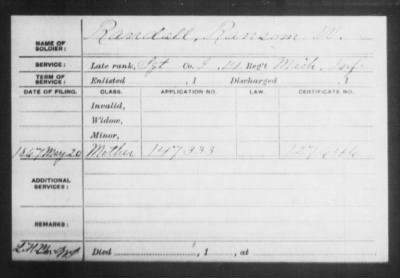 NAME OF SOLDIER: Randall, Ransom W.
SERVICE: Late rank, Sgt Co. I, Reg't Mich. Inf.
TERM OF SERVICE: Enlisted , 1 Discharged , 1
DATE OF FILING. CLASS. APPLICATION NO. LAW. CERTIFICATE NO.
Invalid,
Widow,
Minor,
1867 May 20 Mother 147 333
ADDITIONAL SERVICES:
REMARKS:
Died , 1 , at